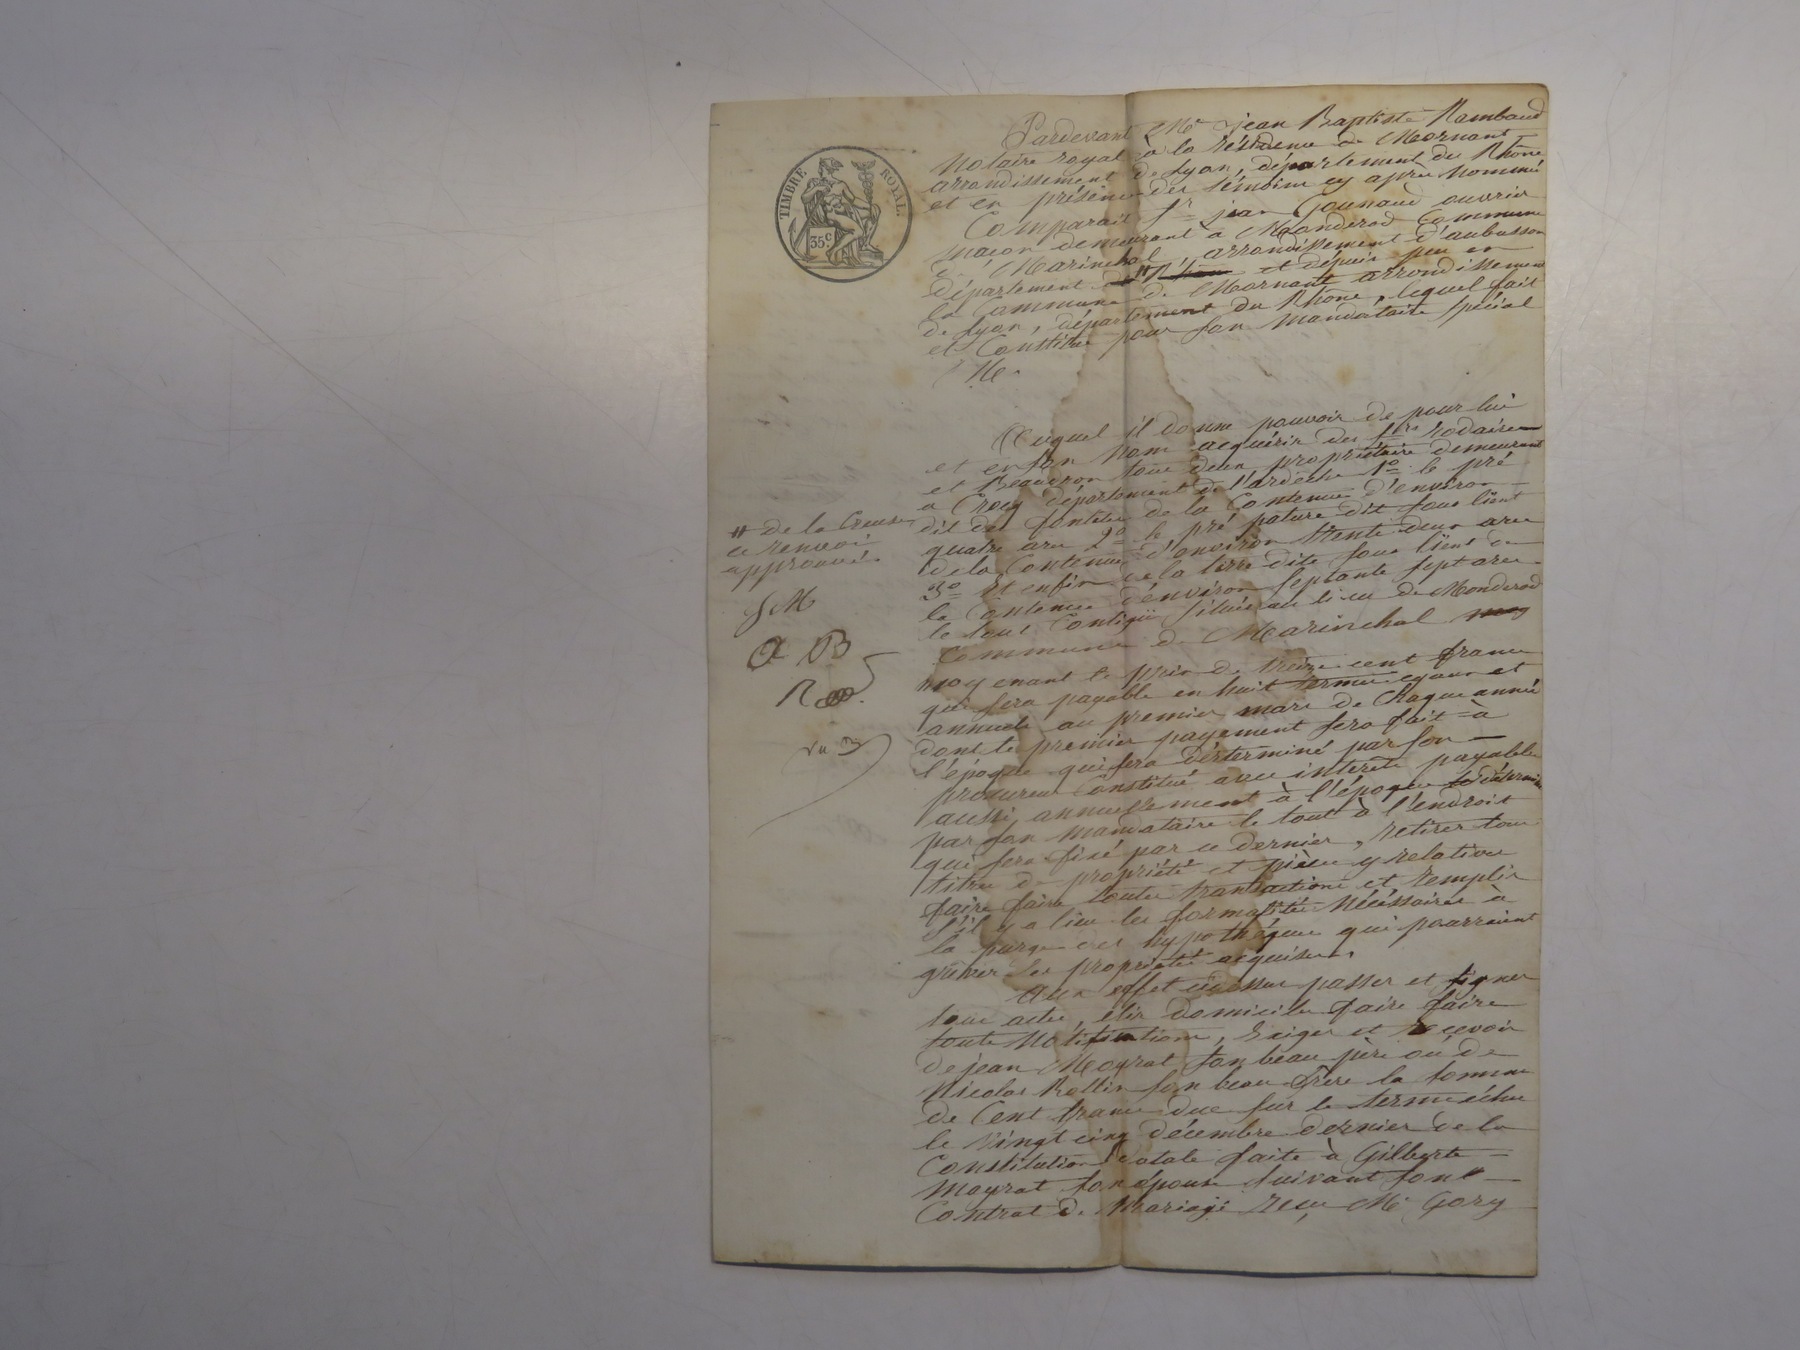 TIMBRE ROYAL.
35c
Pardevant Me jean Baptiste Rambaud
Notaire royal à la résidence de Mornant
arrondissement de Lyon, département du Rhône
et en présence des témoins cy après nommés
Comparait Sr jean Gounaud ouvrier
maçon demeurant à Monderod Commune
de Marinchal arrondissement d'aubusson
département # et dépuis peu en
la Commune de Mornant arrondissement
de Lyon, département du Rhône, lequel fait
et Constitue pour son mandataire spécial
Me
Auquel il donne pouvoir de pour lui
et en son Nom acquérir des Srs rodaire
et Beaudron tous deux propriétaire demeurant
a Crocq département de l'ardèche 1o le pré
dit des de la Contenue d'environ
quatre ares 2o le pré pature dit sous
de la Contenue d'environ trente deux ares
3o Et enfin de la terre dite sous de
la Contenue d'environ septante sept ares
le tout Contigü situé au lieu de Monderod
Commune de Marinchal
moyenant le prix de treize cent francs
qui sera payable en huit termes egaux et
annuels au premier mars de Chaque année
dont le premier payement sera fait à
l'époque qui sera déterminé par son
procureur Constitué avec intérêts payables
aussi annuellement à l'époque déterminé
par son mandataire le tout à l'endroit
qui sera fixé par ce dernier, retirer tous
titres de propriété et pièces y relatives
faire faire toutes transactions et remplir
s'il y a lieu les formalités nécéssaires à
la purge des hypothéques qui pourraient
grèver les propriétés acquises.
Aux effet cidessus passer et signer
tous actes, élir domicile faire faire
toute Notifications, Exiger et recevoir
de jean Moyrat son beau père ou de
Nicolas Rollin son beau frère la somme
de Cent francs due sur le terme échu
le vingt cinq décembre dernier de la
Constitution dotale faite à Gilberte
Moyrat son épouse suivant son
Contrat de Mariage recu Me Gory
# de la Creuse
ce renvoi
approuvé.
JM
A B